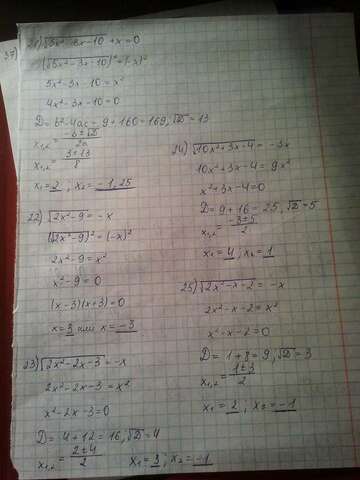 37)
21) √5x²-3x-10 + x = 0
(√5x²-3x-10)² = (-x)²
5x²-3x-10 = x²
4x²-3x-10 = 0
D = b²-4ac = 9+160 = 169, √D = 13
x₁,₂ = (-b±√D)/2a
x₁,₂ = (3±13)/8
x₁ = 2 ; x₂ = -1,25
22) √2x²-9 = -x
(√2x²-9)² = (-x)²
2x²-9 = x²
x²-9 = 0
(x-3)(x+3) = 0
x = 3 или x = -3
23) √2x²-2x-3 = -x
2x²-2x-3 = x²
x²-2x-3 = 0
D = 4+12 = 16, √D = 4
x₁,₂ = (2±4)/2 x₁ = 3 ; x₂ = -1
24) √10x²+3x-4 = -3x
10x²+3x-4 = 9x²
x²+3x-4 = 0
D = 9+16 = 25, √D = 5
x₁,₂ = (-3±5)/2
x₁ = 4 ; x₂ = 1
25) √2x²-x-2 = -x
2x²-x-2 = x²
x²-x-2 = 0
D = 1+8 = 9, √D = 3
x₁,₂ = (1±3)/2
x₁ = 2 ; x₂ = -1